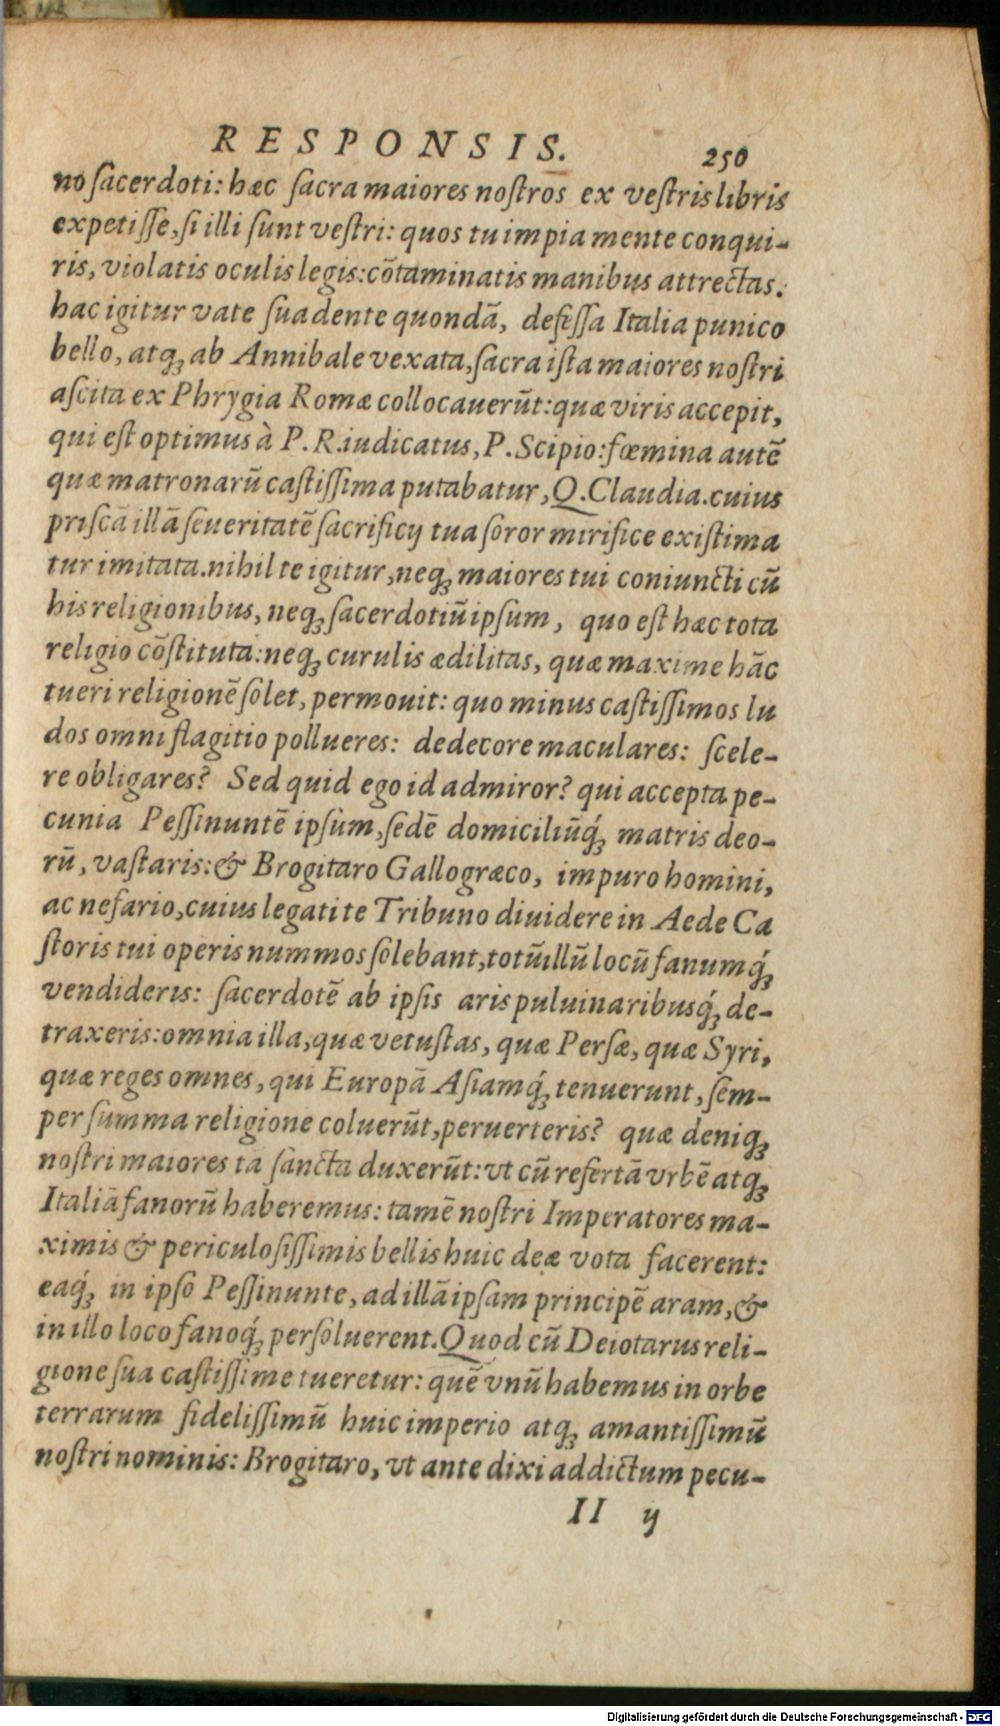 RESPONSIS. 250
no ſacerdoti: hæc ſacra maiores noſtros ex veſtris libris
expetiſſe, ſi illi ſunt veſtri: quos tu impia mente conqui-
ris, violatis oculis legis: cõtaminatis manibus attrectas.
hac igitur vate ſuadente quondã, defeſſa Italia punico
bello, atq; ab Annibale vexata, ſacra iſta maiores noſtri
aſcita ex Phrygia Romæ collocauerũt: quæ viris accepit,
qui eſt optimus à P. R. iudicatus, P. Scipio: fœmina autẽ
quæ matronarũ caſtiſſima putabatur, Q. Claudia. cuius
priſcã illã ſeueritatẽ ſacrificij tua ſoror mirifice exiſtima
tur imitata. nihil te igitur, neq; maiores tui coniuncti cũ
his religionibus, neq; ſacerdotiũ ipſum, quo eſt hæc tota
religio cõſtituta: neq; curulis ædilitas, quæ maxime hãc
tueri religionẽ ſolet, permouit: quo minus caſtiſſimos lu
dos omni flagitio pollueres: dedecore maculares: ſcele-
re obligares? Sed quid ego id admiror? qui accepta pe-
cunia Peſſinuntẽ ipſum, ſedẽ domiciliũq́; matris deo-
rũ, vaſtaris: & Brogitaro Gallogræco, impuro homini,
ac nefario, cuius legati te Tribuno diuidere in Aede Ca
ſtoris tui operis nummos ſolebant, totũ illũ locũ fanumq́;
vendideris: ſacerdotẽ ab ipſis aris puluinaribusq́; de-
traxeris: omnia illa, quæ vetuſtas, quæ Perſæ, quæ Syri,
quæ reges omnes, qui Europã Aſiamq́; tenuerunt, ſem-
per ſumma religione coluerũt, peruerteris? quæ deniq;
noſtri maiores tã ſancta duxerũt: vt cũ refertã vrbẽ atq;
Italiã fanorũ haberemus: tamẽ noſtri Imperatores ma-
ximis & periculoſiſſimis bellis huic deæ vota facerent:
eaq́; in ipſo Peſſinunte, ad illã ipſam principẽ aram, &
in illo loco fanoq́; perſoluerent. Quod cũ Deiotarus reli-
gione ſua caſtiſſime tueretur: quẽ vnũ habemus in orbe
terrarum fideliſſimũ huic imperio atq; amantiſſimũ
noſtri nominis: Brogitaro, vt ante dixi addictum pecu-
II ij
Digitalisierung gefördert durch die Deutsche Forschungsgemeinschaft - DFG